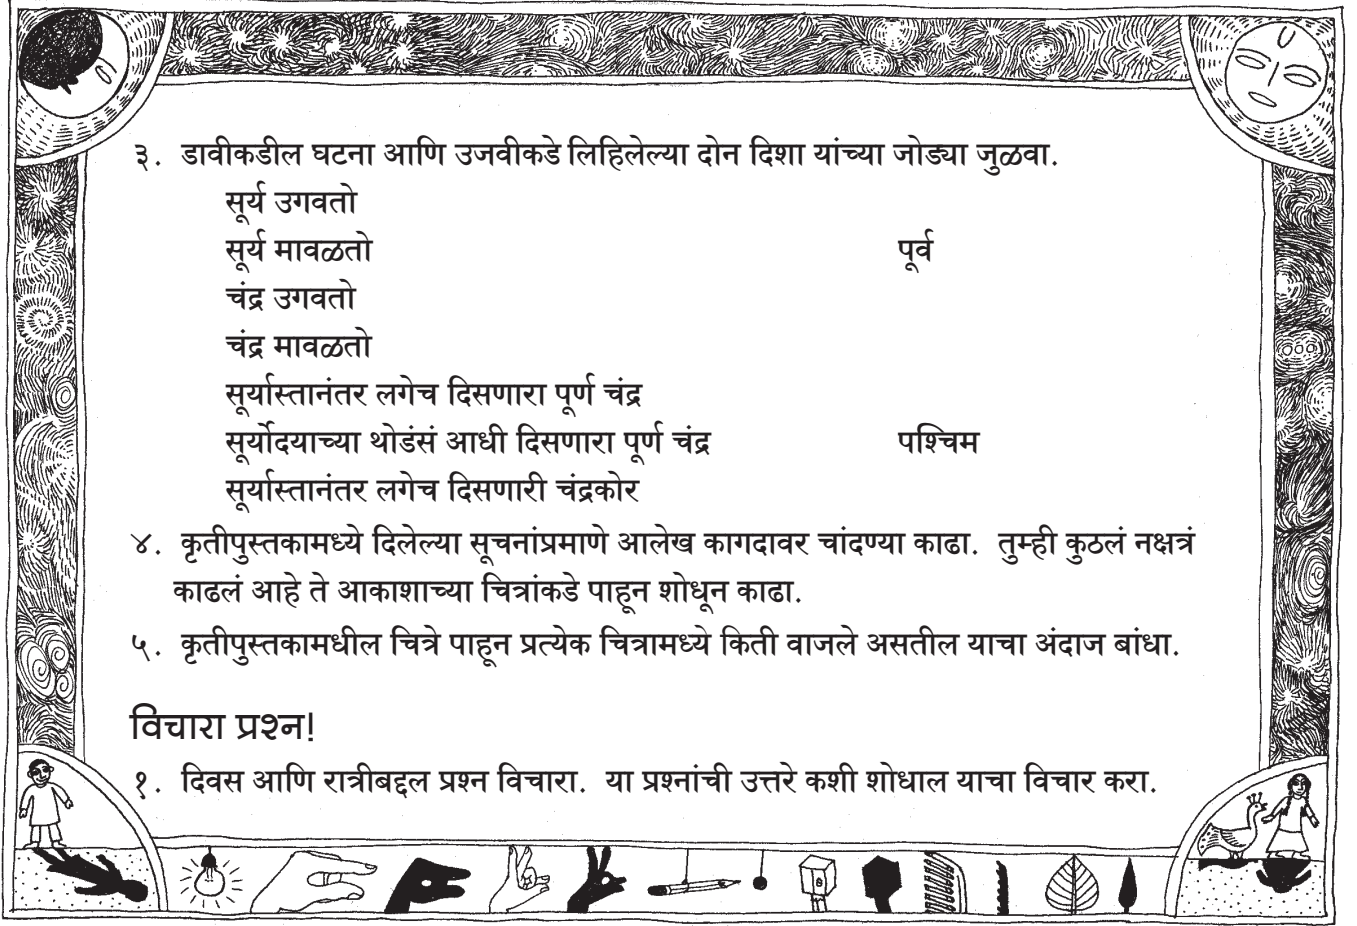 ३. डावीकडील घटना आणि उजवीकडे लिहिलेल्या दोन दिशा यांच्या जोड्या जुळवा.
सूर्य उगवतो
सूर्य मावळतो पूर्व
चंद्र उगवतो
चंद्र मावळतो
सूर्यास्तानंतर लगेच दिसणारा पूर्ण चंद्र
सूर्योदयाच्या थोडंसं आधी दिसणारा पूर्ण चंद्र पश्चिम
सूर्यास्तानंतर लगेच दिसणारी चंद्रकोर
४. कृतीपुस्तकामध्ये दिलेल्या सूचनांप्रमाणे आलेख कागदावर चांदण्या काढा. तुम्ही कुठलं नक्षत्रं
काढलं आहे ते आकाशाच्या चित्रांकडे पाहून शोधून काढा.
५. कृतीपुस्तकामधील चित्रे पाहून प्रत्येक चित्रामध्ये किती वाजले असतील याचा अंदाज बांधा.
विचारा प्रश्न!
१. दिवस आणि रात्रीबद्दल प्रश्न विचारा. या प्रश्नांची उत्तरे कशी शोधाल याचा विचार करा.